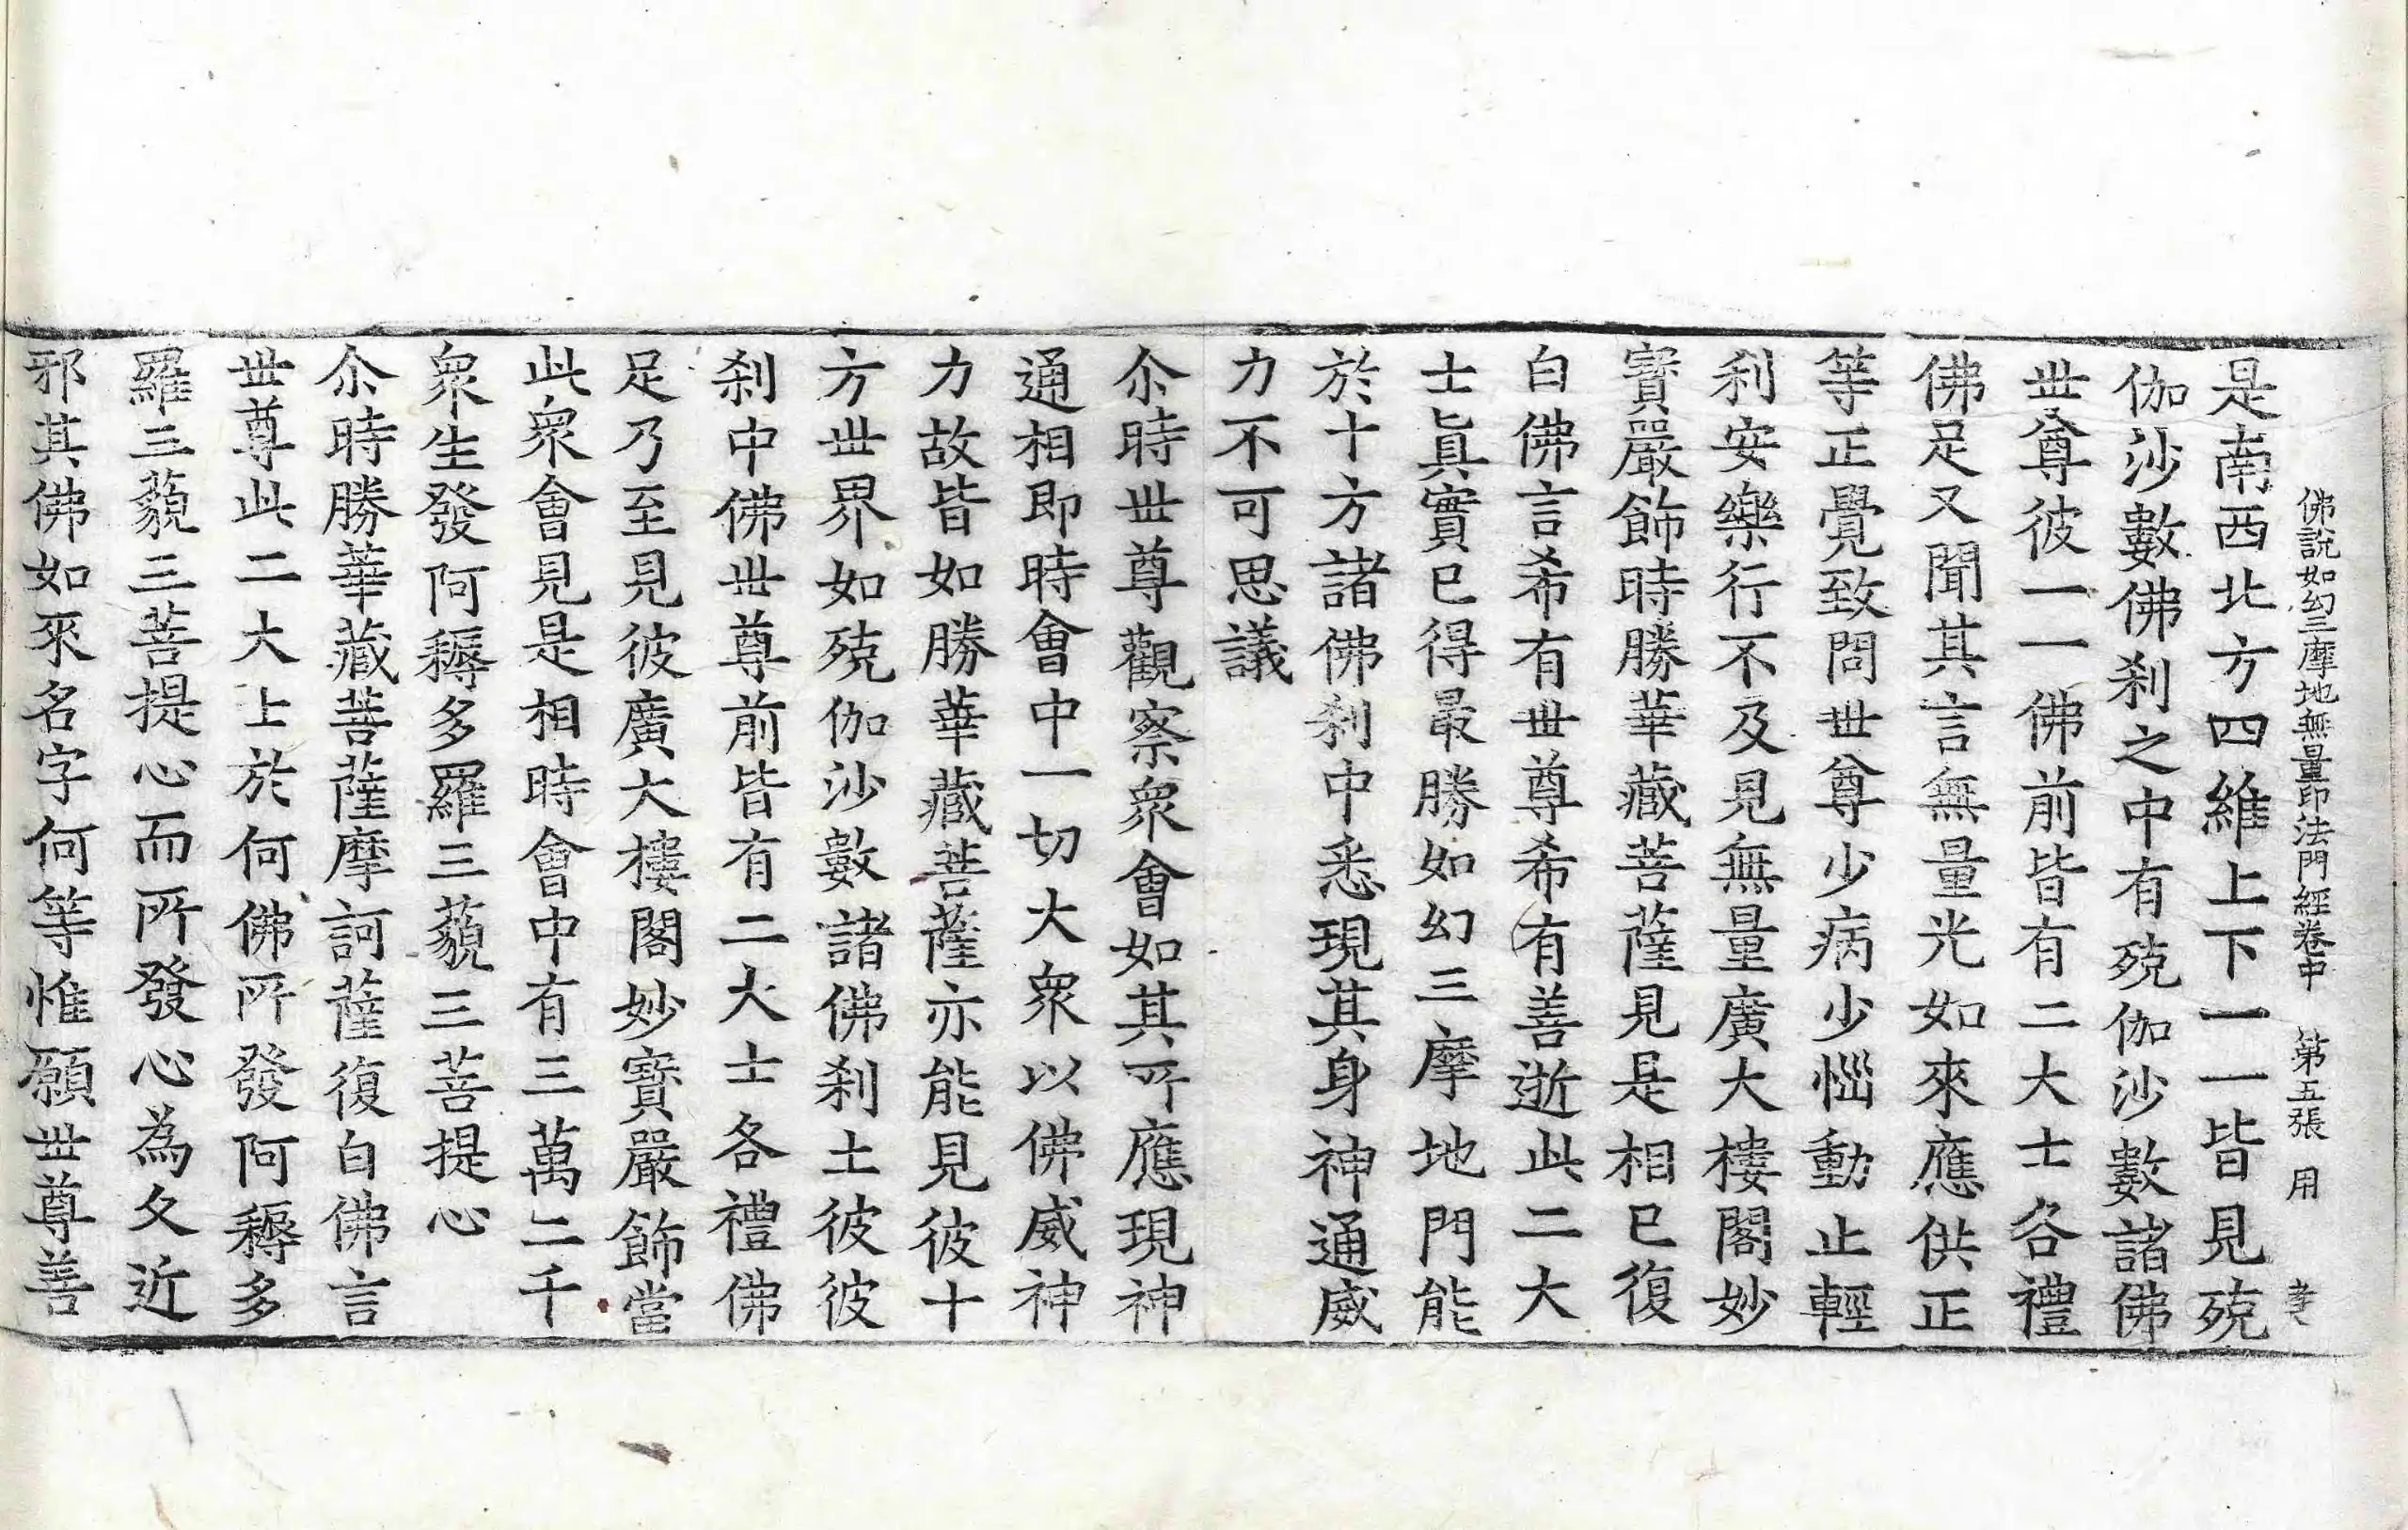 佛說如幻三摩地無量印法門經卷中 第五張 用
是南西北方四維上下一一皆見殑
伽沙數佛刹之中有殑伽沙數諸佛
丗尊彼一一佛前皆有二大士各禮
佛足又聞其言無量光如來應供正
等正覺致問丗尊少病少惱動止輕
利安樂行不及見無量廣大樓閣妙
寶嚴飾時勝華藏菩薩見是相已復
白佛言希有丗尊希有善逝此二大
士眞實已得最勝如幻三摩地門能
於十方諸佛刹中悉現其身神通威
力不可思議
尒時丗尊觀察衆會如其所應現神
通相即時會中一切大衆以佛威神
力故皆如勝華藏菩薩亦能見彼十
方丗界如殑伽沙數諸佛刹土彼彼
刹中佛丗尊前皆有二大士各禮佛
足乃至見彼廣大樓閣妙寶嚴飾當
此衆會見是相時會中有三萬二千
衆生發阿耨多羅三藐三菩提心
尒時勝華藏菩薩摩訶薩復白佛言
丗尊此二大士於何佛所發阿耨多
羅三藐三菩提心而所發心為久近
邪其佛如來名字何等惟願丗尊善